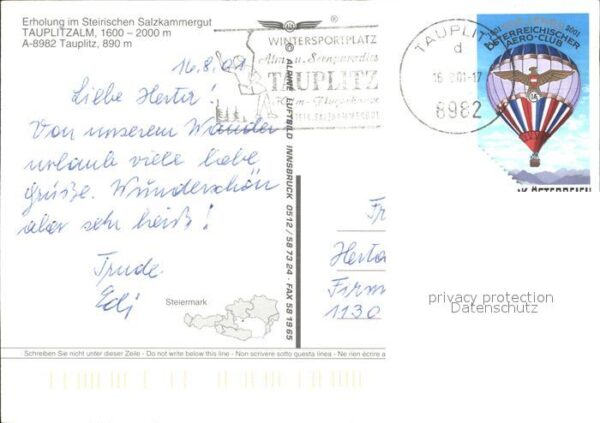 Erholung im Steirischen Salzkammergut
TAUPLITZALM, 1600 – 2000 m
A-8982 Tauplitz, 890 m
16.8.01
Liebe Herta!
Von unserem Wander
urlaub viele liebe
Grüße. Wunderschön
aber sehr heiß!
Trude
Edi
Steiermark
© ALPINE LUFTBILD INNSBRUCK 0512/58 73 24 - FAX 58 19 65
WINTERSPORTPLATZ
Alm- u. Seenparadies
TAUPLITZ
TAUPLITZ
d
16. 8.01-17
8982
1901 2001
ÖSTERREICHISCHER
AERO-CLUB
ÖSTERREICH
Herta
Firm
1130
privacy protection
Datenschutz
Schreiben Sie nicht unter dieser Zeile - Do not write below this line - Non scrivere sotto questa linea - Ne rien écrire a